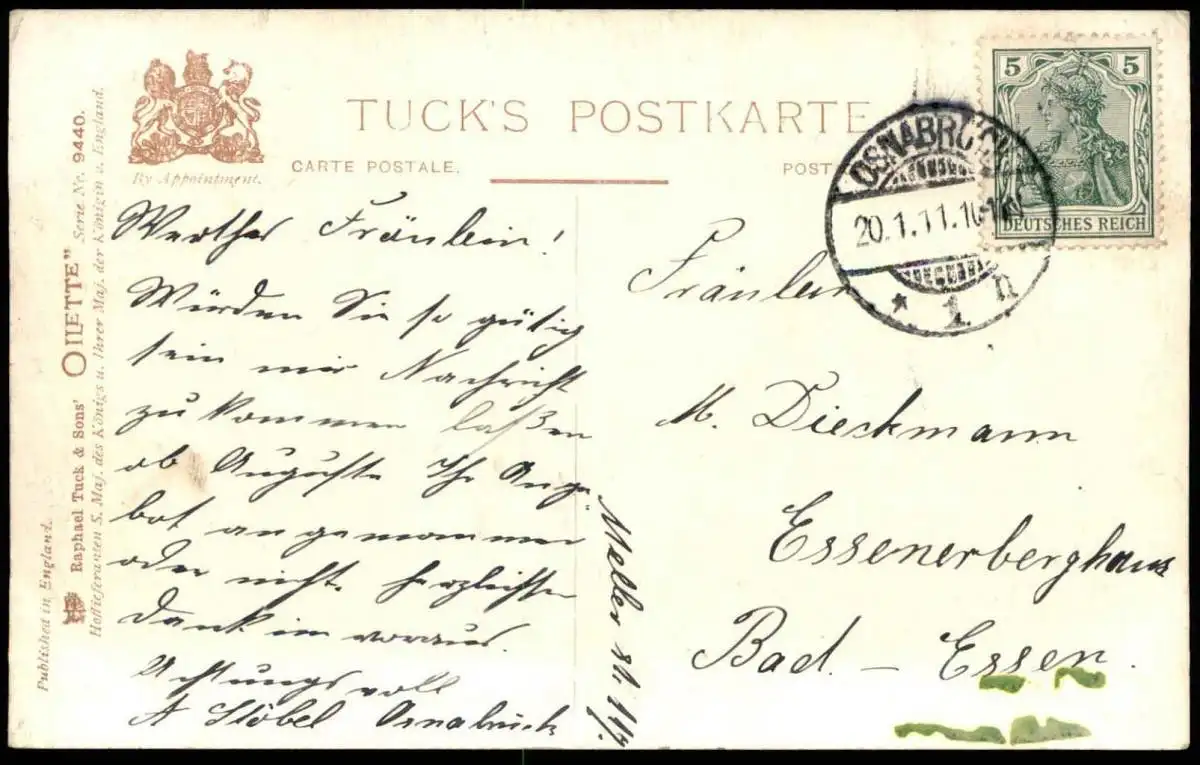 By Appointment.
TUCK'S POSTKARTE
CARTE POSTALE.
POST
Published in England.
Raphael Tuck & Sons' "OILETTE" Serie Nr. 9440.
Hoflieferanten S. Maj. des Königs u. Ihrer Maj. der Königin v. England.
5 5
DEUTSCHES REICH
OSNABRÜCK
20.1.11.10-11V
* 1 n
Werthes Fräulein!
Würden Sie so gütig
sein mir Nachricht
zu kommen laßen
ob Auguste Ihr Ange-
bot angenommen
oder nicht. Herzlichsten
Dank im voraus.
Achtungsvoll
A Stöbel Osnabrück
Meller st.
Fräulein
M. Dieckmann
Essenerberghaus
Bad – Essen.